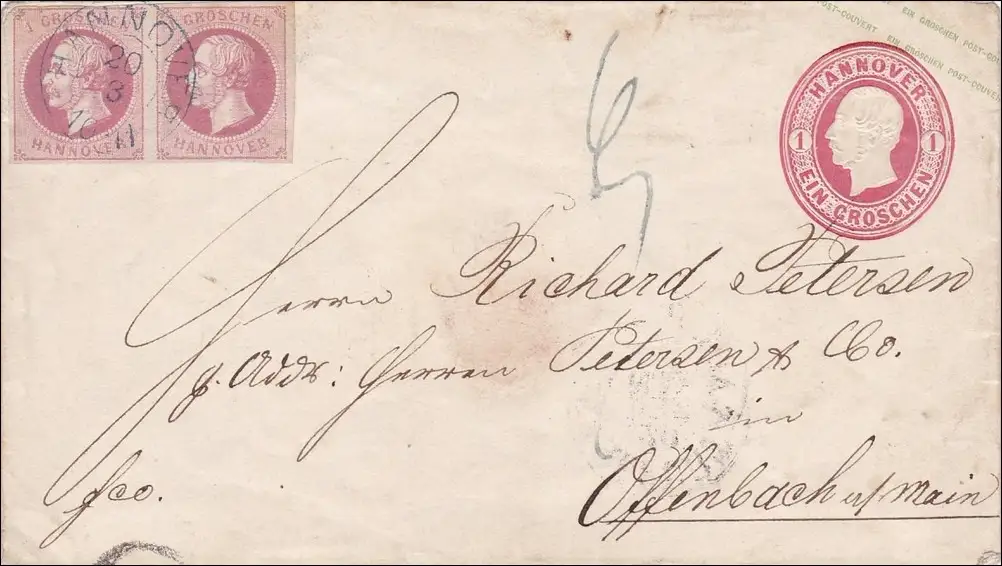 1 GROSCHEN
HANNOVER
GROSCHEN
HANNOVER
HANNOVER
20
3
EIN GROSCHEN POST-COUVERT
EIN GROSCHEN POST-COUVERT
HANNOVER
1 1
EIN GROSCHEN
Herrn Richard Petersen
p. Addr: Herren Petersen & Co.
in
fco.
Offenbach a/Main